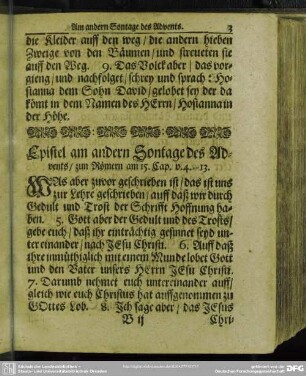 Am andern Sontage des Advents. 3
die Kleider auff den weg / die andern hieben
Zweige von den Bäumen / und streueten sie
auff den Weg. 9. Das Volck aber / das vor-
gieng / und nachfolget / schrey und sprach: Ho-
sianna dem Sohn David / gelobet sey der da
kömt in dem Namen des HErrn / Hosianna in
der Höhe.
Epistel am andern Sontage des Ad-
vents / zum Römern am 15. Cap. v. 4.–13.
WAs aber zwor geschrieben ist / das ist uns
zur Lehre geschrieben / auff daß wir durch
Gedult und Trost der Schrifft Hoffnung ha-
ben. 5. Gott aber der Gedult und des Trosts /
gebe euch / daß ihr einträchtig gesinnet seyd un-
ter einander / nach JEsu Christi. 6. Auff daß
ihr einmüthiglich mit einem Munde lobet Gott
und den Vater unsers HErrn JEsu Christi.
7. Darumb nehmet euch untereinander auff /
gleich wie euch Christus hat auffgenommen zu
GOttes Lob. 8. Ich sage aber / das JEsus
B ij Chri-